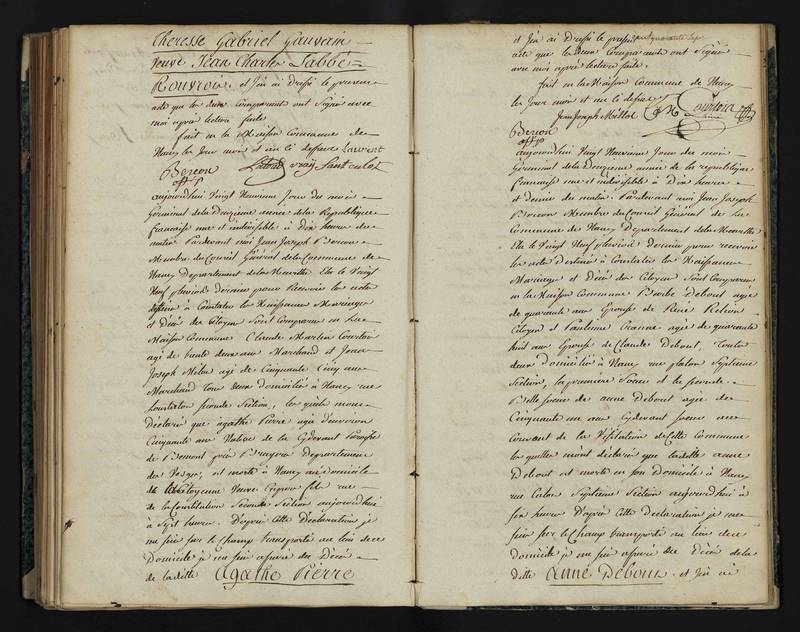 Theresse Gabriel Gauvain
veuve Jean Charles Labbé
Rouvrois. et J'ai ai Dressé le present
acte que les deux comparant ont Signé avec
moi après lecture faite
fait en la Maison Commune de
Nancy les Jour mois et an ci dessus Laurent
Berson off p
aujourdhui Vingt Neuvieme Jour du mois
Germinal de la Deuxieme année de la Republique
française une et indivisible à Dix heure du
matin Pardevant moi Jean Joseph Berson
Membre du Conseil Général de la Commune de
Nancy Departement de la Meurthe Elu le Vingt
Neuf pluviose dernier pour Recevoir les acte
destiné à Constater les Naissance Mariage
et Décé des Citoyen Sont Comparue en la
Maison Commune Claude Martin Courtois
agé de trente deux ans Marchand et Jean
Joseph Milot agé de Cinquante Cinq ans
Marchand tous deux Domicilié à Nancy rue
seconde Section, lesquels mont
Déclaré que agathe Pierre agée d'environ
Cinquante ans Native de la Cydevant Paroisse
de près Bruyere Departement
des Vosges, est morte à Nancy au domicile
de la Citoyenne Veuve rue
de la Constitution Seconde Section aujourdhui
à Sept heure. D'après Cette Déclaration je
me suis sur le Champ transporté au lieu de ce
Domicile je me suis assuré du Décé
de ladite Agathe Pierre
et J'en ai Dressé le present
acte que les deux Comparants ont Signé
avec moi après lecture faite.
fait en la Maison Commune de Nancy
les Jour mois et an ci dessus
Jean Joseph Millot Courtois
Berson off p
aujourdhui Vingt Neuvieme Jour du mois
Germinal de la Deuxieme année de la republique
française une et indivisible à Dix heures
et demie du matin. Pardevant moi Jean Joseph
Berson Membre du Conseil Général de la
Commune de Nancy Departement de la Meurthe
Elu le Vingt Neuf pluviose Dernier pour recevoir
les acte Destiné à Constater les Naissance
Mariage et Décé des Citoyen Sont Comparue
en la Maison Commune Barbe Debout agée
de quarante ans Epouse de René
Citoyen et agée de quarante
huit ans Epouse de Claude Debout, toute
deux Domicilié à Nancy rue platon Septieme
Section, la premiere Soeur et la seconde
Belle Soeur de anne Debout agée de
Cinquante un ans Cydevant Soeur au
Couvent de la Visitation de Cette Commune
lesquelles mont déclaré que ladite anne
Debout est morte en son Domicile à Nancy
rue Septieme Section aujourdhui à
heures D'après Cette Déclaration je me
suis sur le Champ transporté au lieu de ce
Domicile je me suis assuré du Décé de la
ditte Anne Debout. et J'en ai